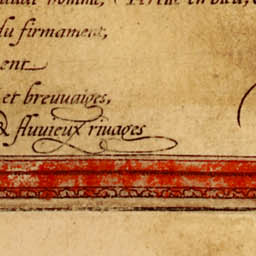 du firmament,
ent
et breuuaiges,
& fluuieux riuages